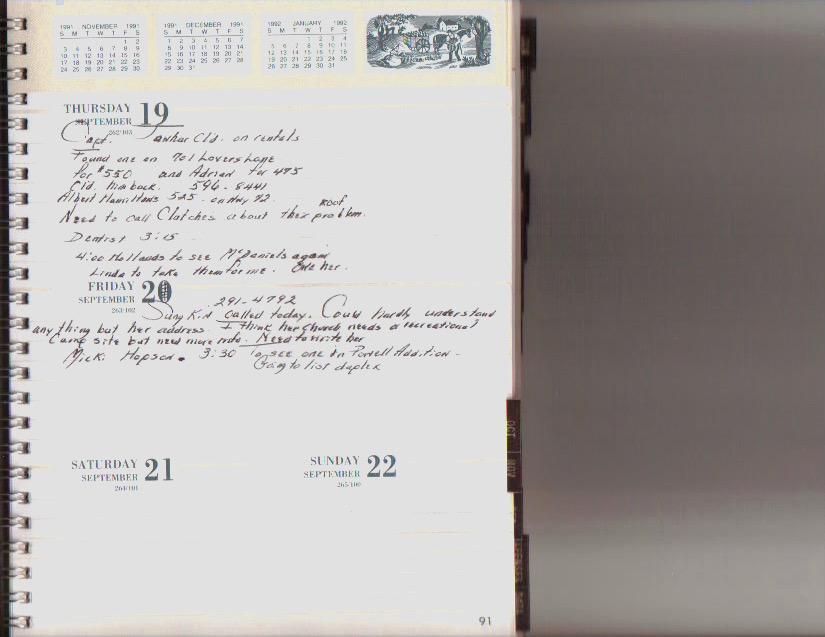 1991 NOVEMBER 1991
S M T W T F S
1 2
3 4 5 6 7 8 9
10 11 12 13 14 15 16
17 18 19 20 21 22 23
24 25 26 27 28 29 30
1991 DECEMBER 1991
S M T W T F S
1 2 3 4 5 6 7
8 9 10 11 12 13 14
15 16 17 18 19 20 21
22 23 24 25 26 27 28
29 30 31
1992 JANUARY 1992
S M T W T F S
1 2 3 4
5 6 7 8 9 10 11
12 13 14 15 16 17 18
19 20 21 22 23 24 25
26 27 28 29 30 31
THURSDAY
SEPTEMBER 19
262/103
Capt. Cld. on rentals
Found one on 701 Lovers Lane
for $550 and Adrian for 475
Cld. him back. 596-8441
Albert Hamiltons 525 - on Hwy 72.
Need to call Clatches about their roof problem.
Dentist 3:15
4:00 Hollands to see McDaniels again
Linda to take them for me. Owe her.
FRIDAY
SEPTEMBER 20
263-102
291-4792
Sung Kid called today. Could hardly understand
any thing but her address. I think her church needs a recreational
Camp site but need more info. Need to write her
Mick Hopson. 3:30 To see one in Powell Addition -
Going to list duplex
SATURDAY
SEPTEMBER 21
264/101
SUNDAY
SEPTEMBER 22
265/100
91